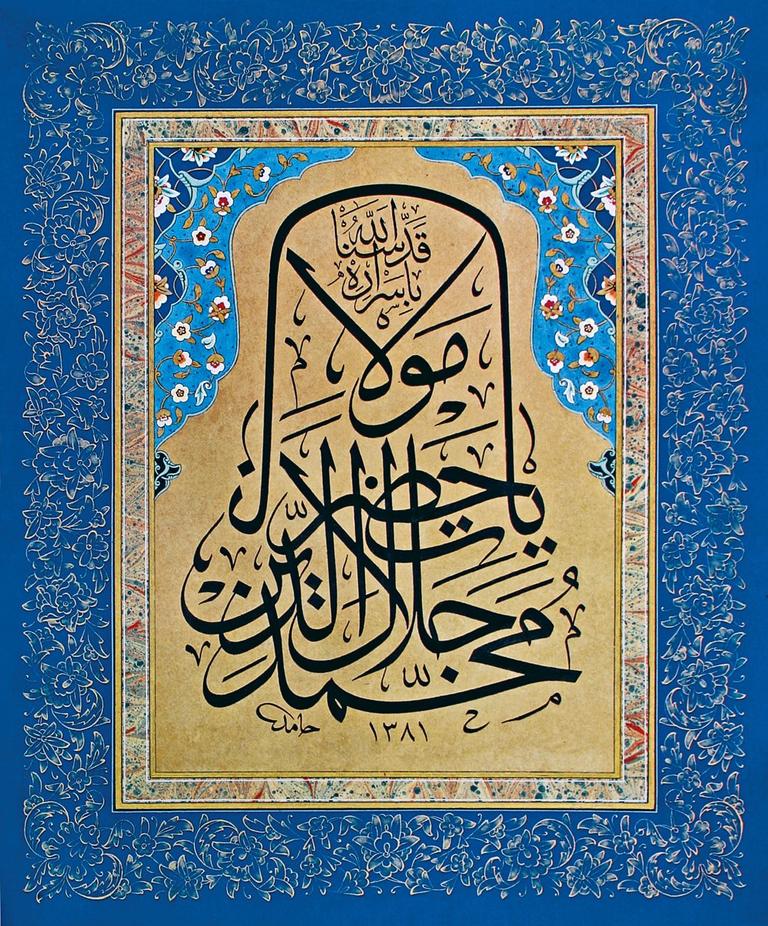 قدسنا الله
باسراره
يا حضرت مولانا
محمد جلال الدين
حامد ١٣٨١